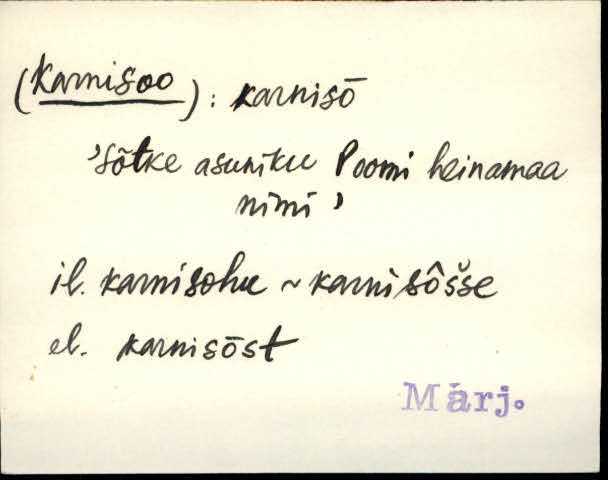 (Karnisoo): karnisō
'Sõtke asuniku Poomi heinamaa
nimi'
il. karnisohu ~ karnisôšse
el. karnisōst
Märj.